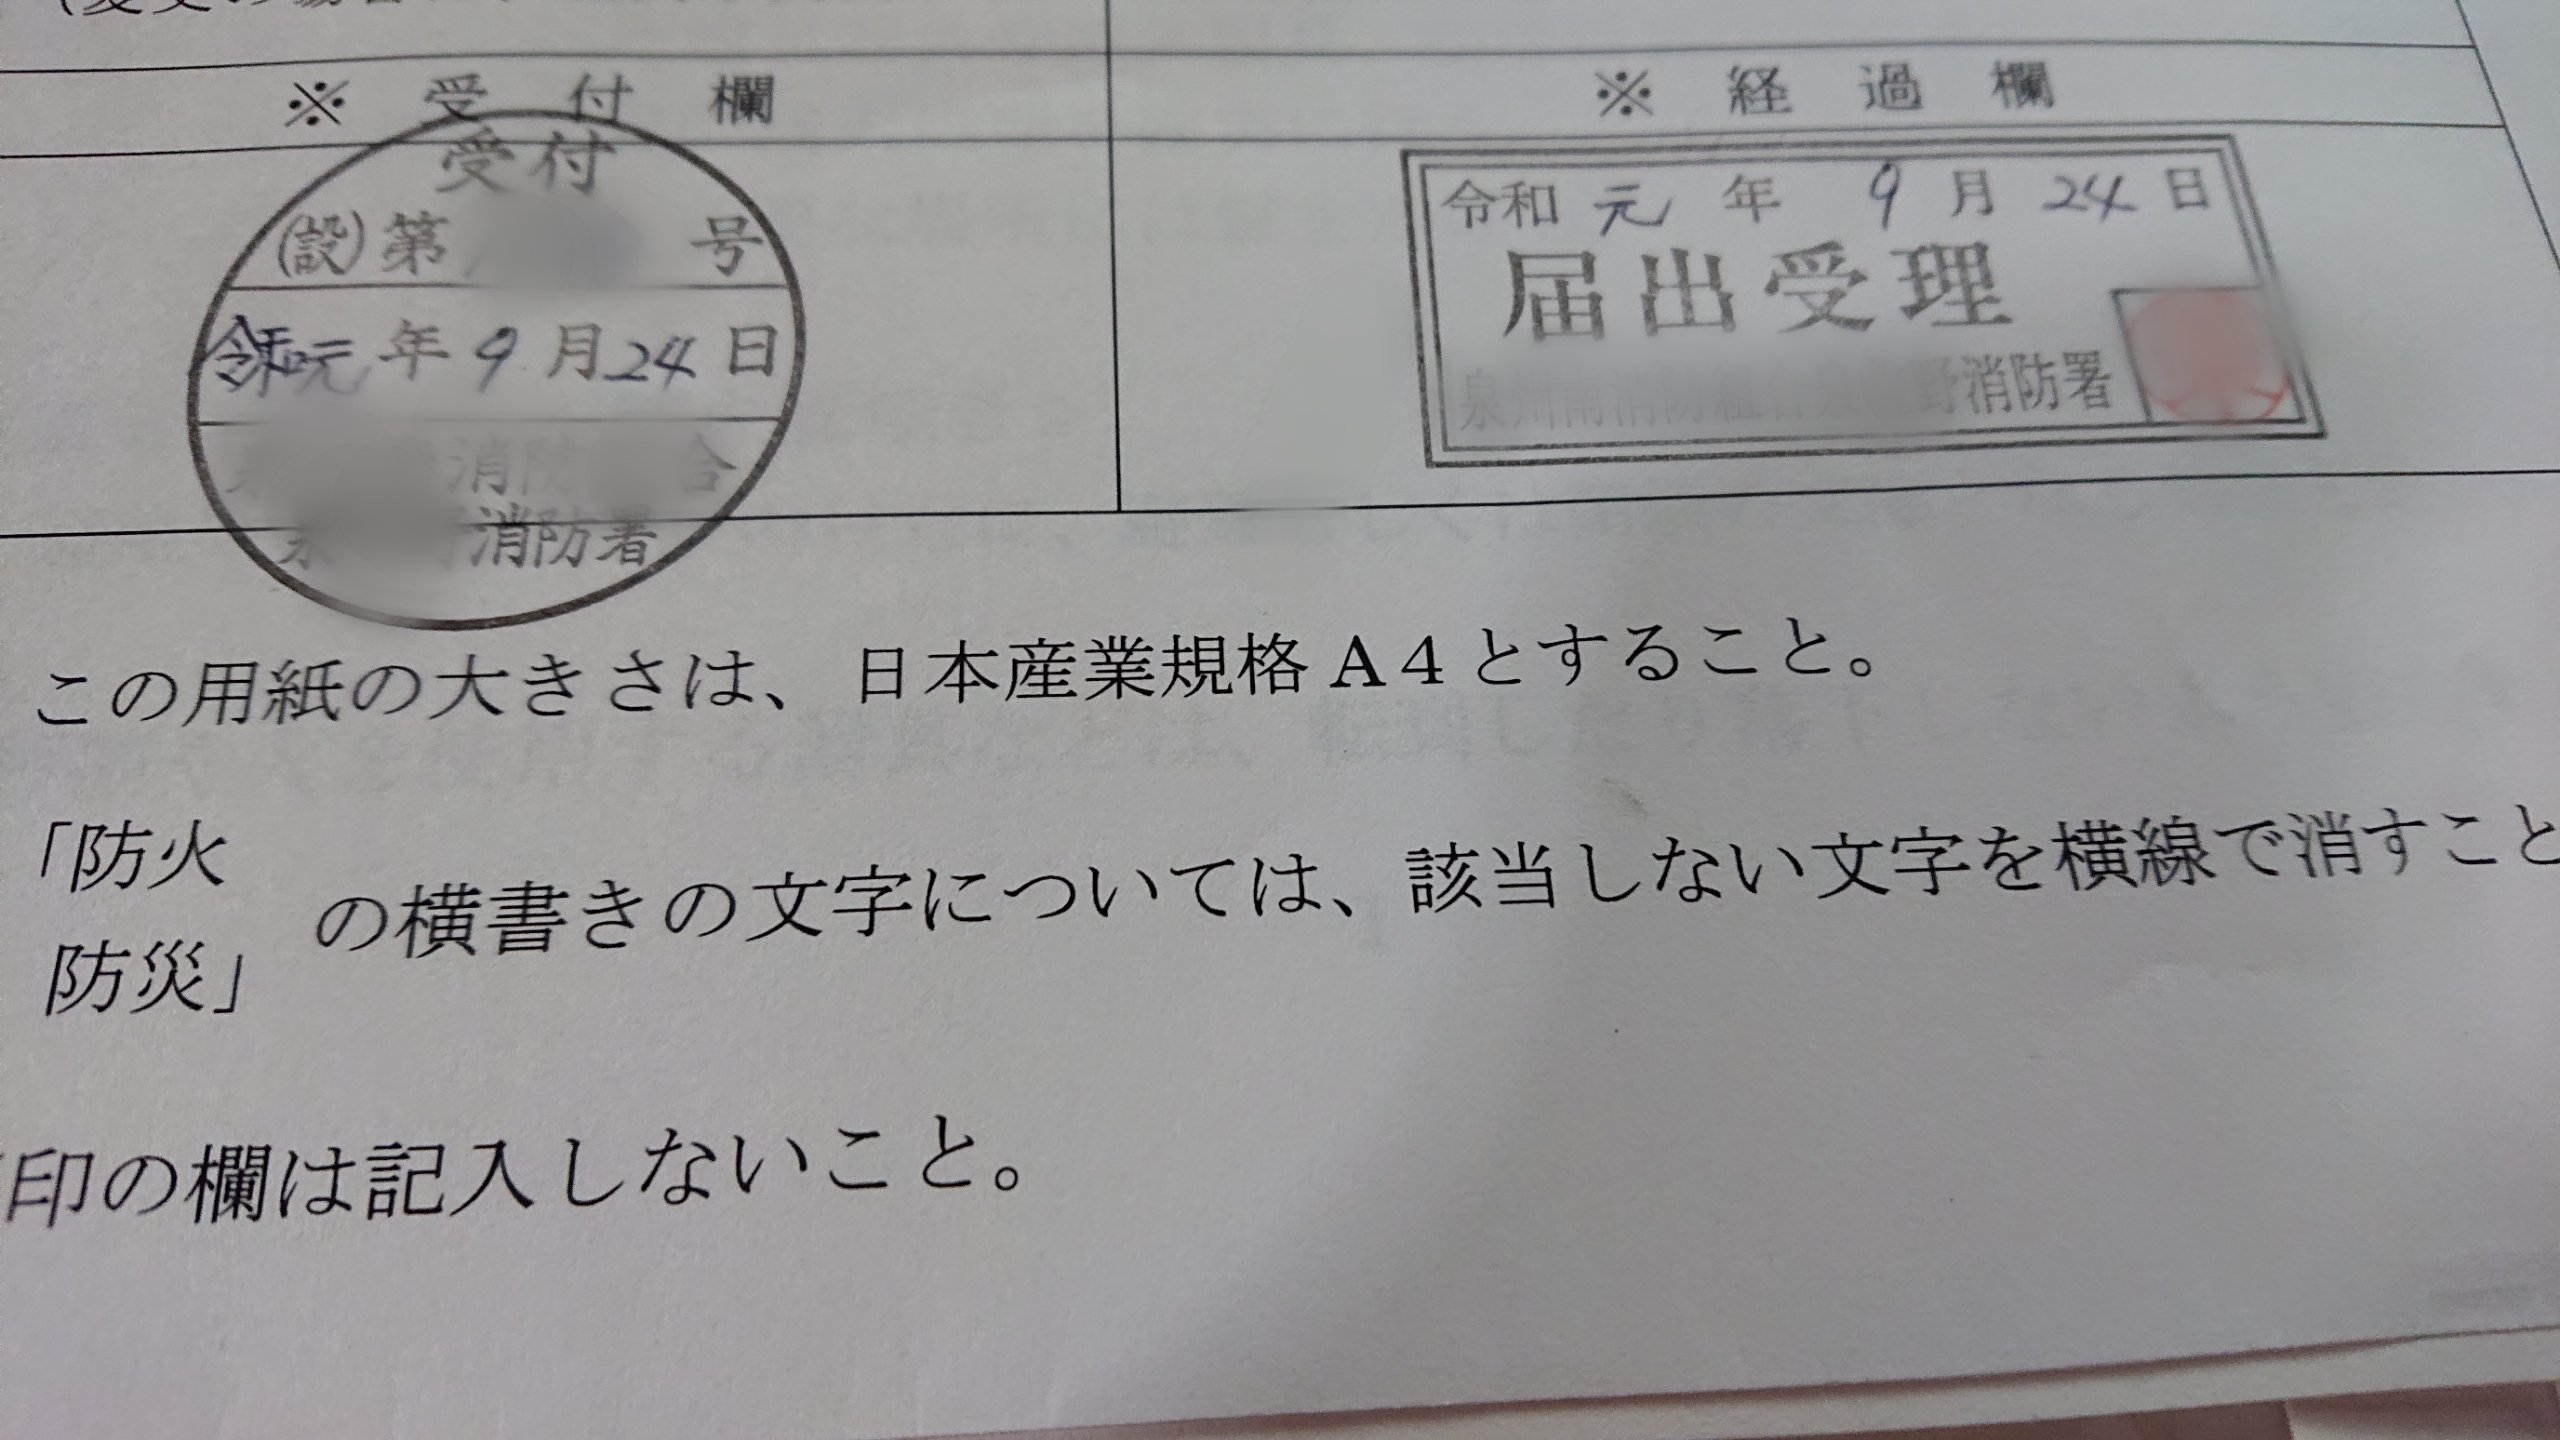 ※ 受 付 欄
※ 経 過 欄
受付
㊢第 号
令和元年9月24日
消防 合
消防署
令和 元 年 9 月 24 日
届出受理
野消防署
この用紙の大きさは、日本産業規格A4とすること。
「防火
防災」
の横書きの文字については、該当しない文字を横線で消すこと
印の欄は記入しないこと。